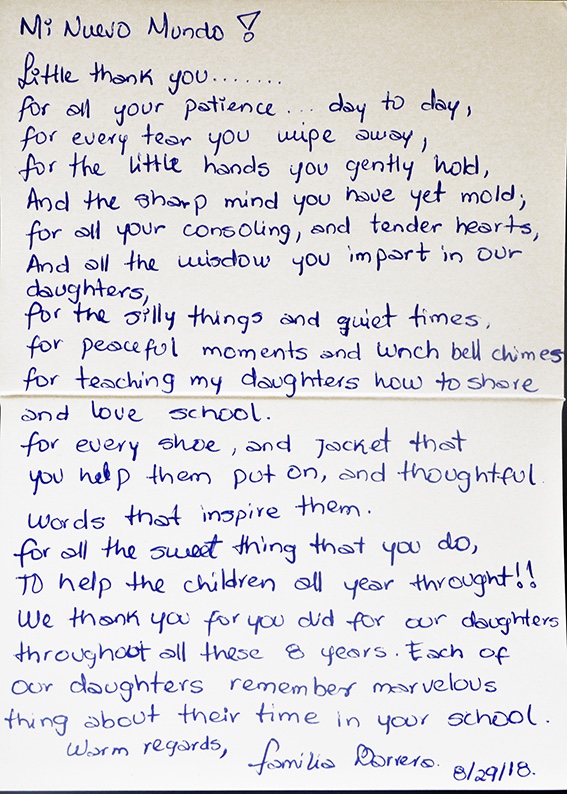 Mi Nuevo Mundo!
Little thank you.......
for all your patience... day to day,
for every tear you wipe away,
for the little hands you gently hold,
And the sharp mind you have yet mold;
for all your consoling, and tender hearts,
And all the wisdow you impart in our
daughters,
for the silly things and quiet times.
for peaceful moments and lunch bell chimes
for teaching my daughters how to share
and love school.
for every shoe, and jacket that
you help them put on, and thoughtful.
words that inspire them.
for all the sweet thing that you do,
To help the children all year throught!!
We thank you for you did for our daughters
throughout all these 8 years. Each of
our daughters remember marvelous
thing about their time in your school.
Warm regards, familia
8/29/18.